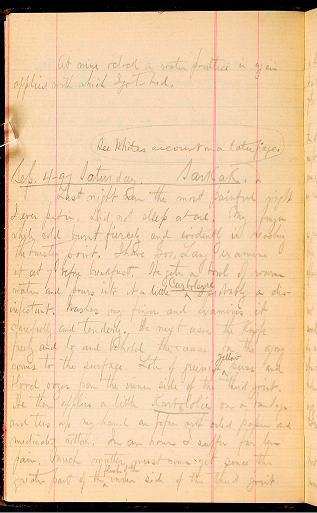 At nine o'clock a water poultice is again
applied with which I go to bed.
See White's account on a later page.
Sep. 4-97 Saturday. Sarkah.
Last night was the most painful night
I ever put in. Did not sleep at all. My finger
while cold burnt fiercely and evidently is nearing
the bursting point. I have Doc. Lang examine
it at 7 before breakfast. He gets a bowl of warm
water and pours into it a little Carbolyze probably a dis-
infectant. Washes my finger and examines it
carefully and tenderly. He must use the knife
and lo and behold the cause of the agony
comes to the surface. Lots of green yellow puss and
blood oozes from the inner side of the third joint.
He then applies a little Carbolic on a bandage
and ties up my hand in paper with oiled paper and
medicated cotton. In an hour I suffer far less
pain. Much matter must come yet since the
greater part of the flesh of the inner side of the third joint